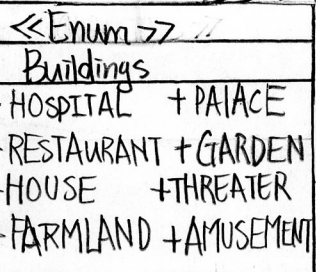 <<Enum>>
Buildings
-HOSPITAL +PALACE
-RESTAURANT +GARDEN
-HOUSE +THREATER
-FARMLAND +AMUSEMENT